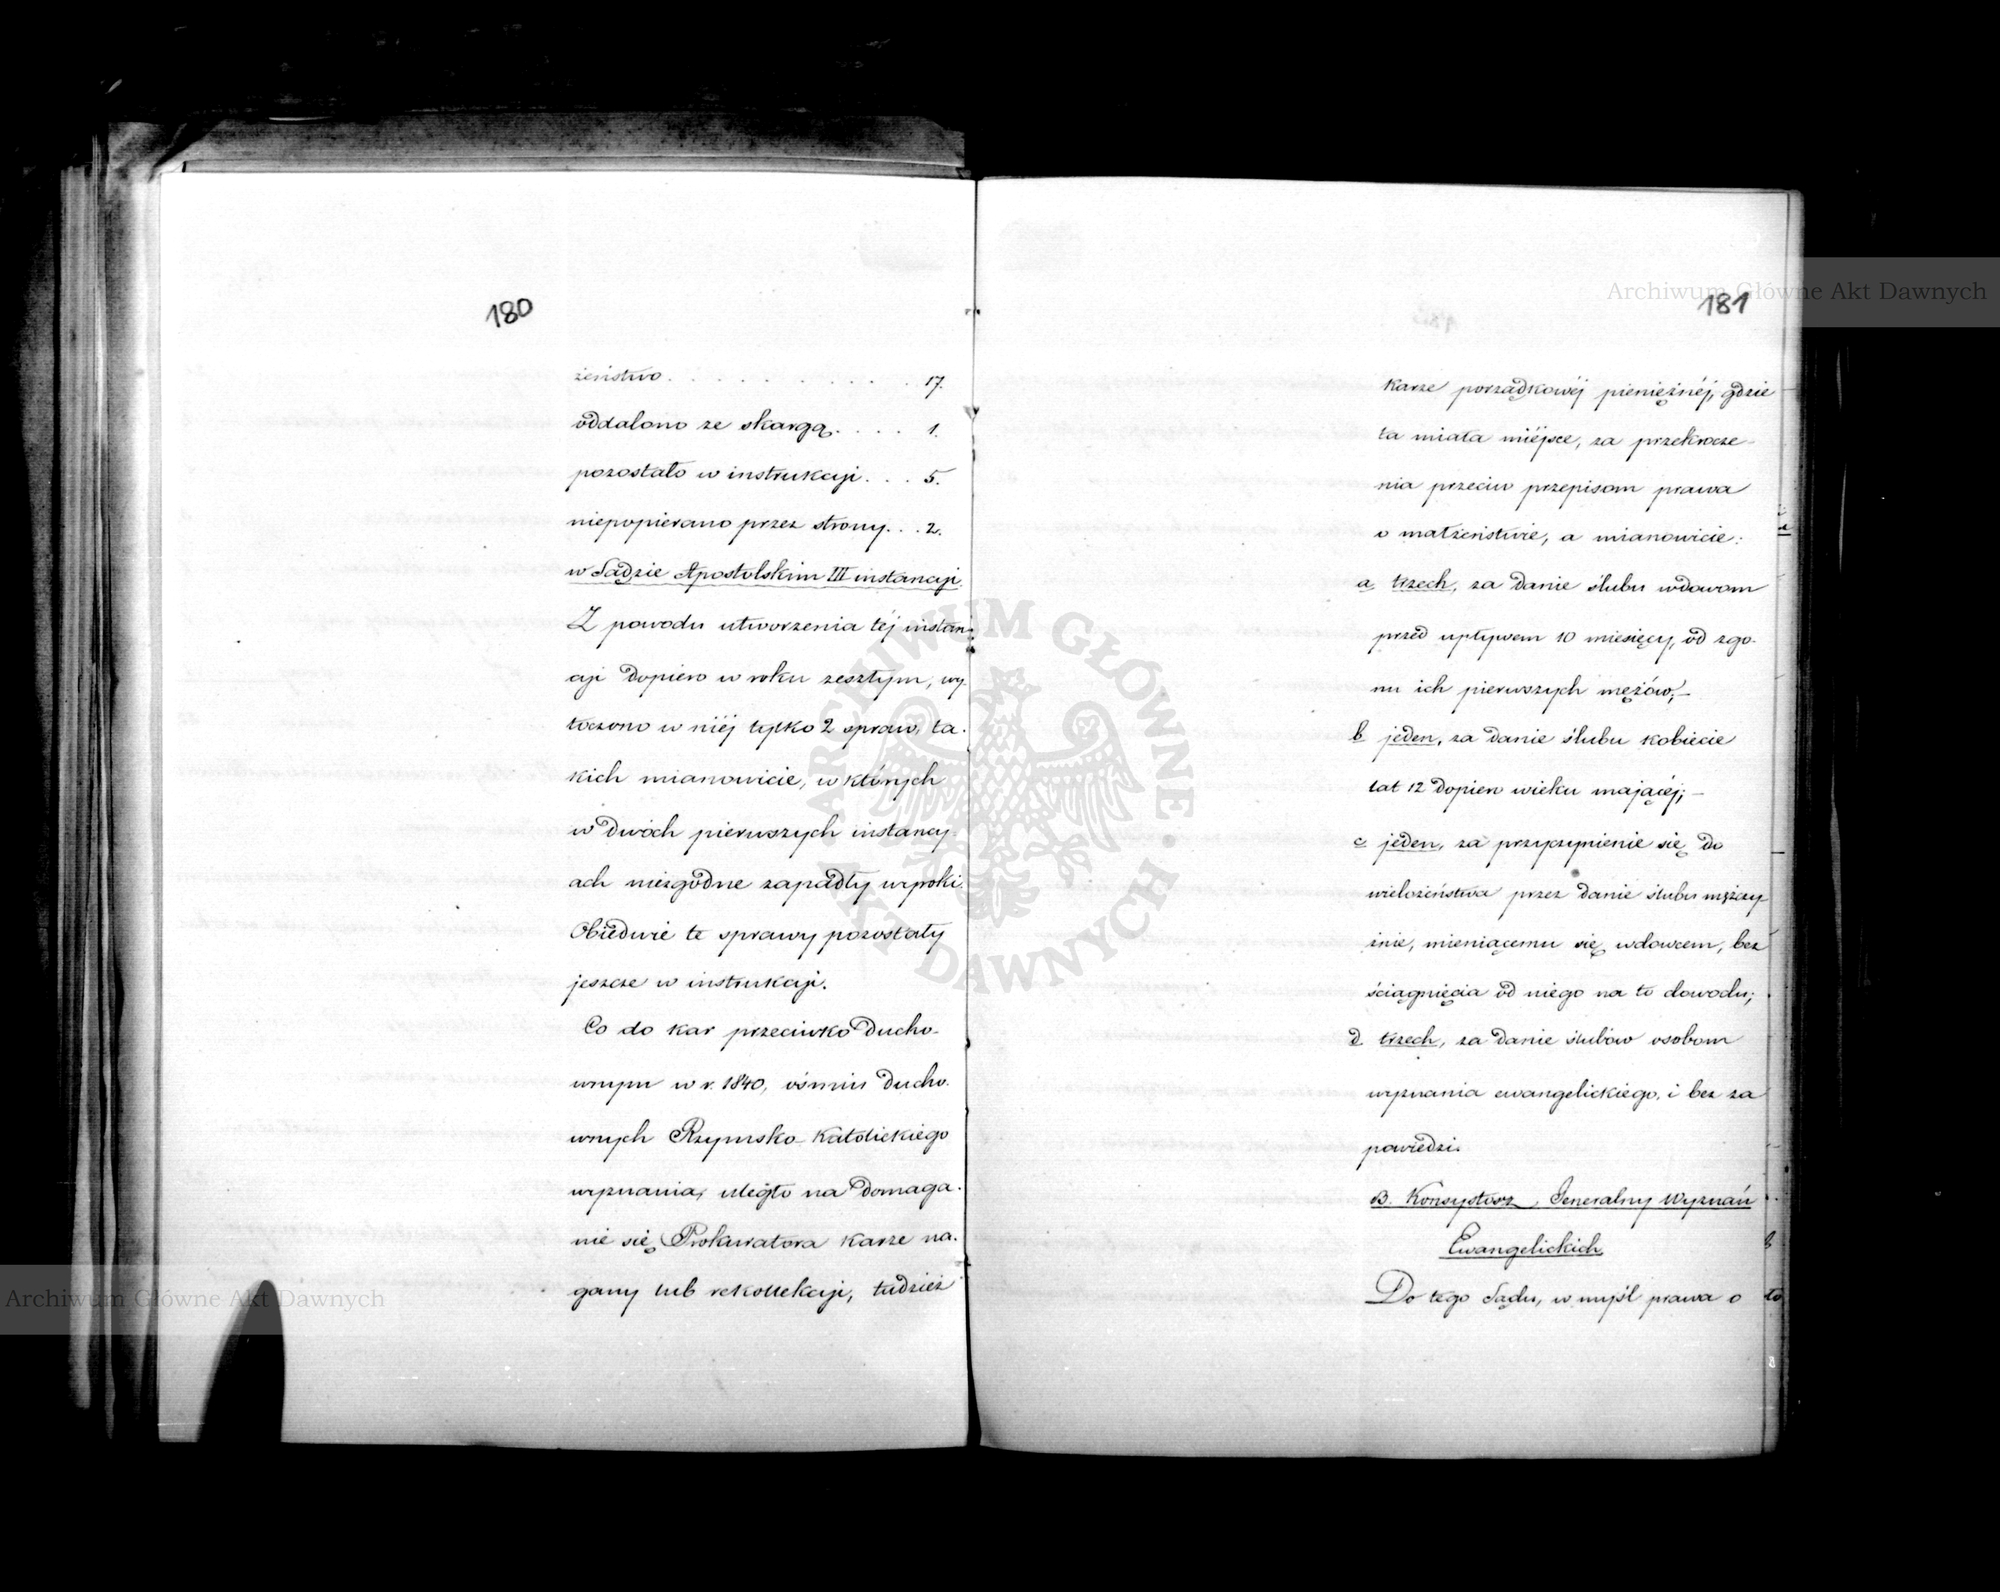 180
żeństwo. . . . . . . . . . . 17.
oddalono ze skargą. . . . . 1.
pozostało w instrukcyi. . . . 5.
niepopierano przez strony. . . 2.
w Sądzie Apostolskim III instancyi.
Z powodu utworzenia téj instan-
cyi dopiero w roku zeszłym, wy-
toczono w niéj tylko 2 spraw, ta-
kich mianowicie, w których
w dwóch pierwszych instancy-
ach niezgodne zapadły wyroki.
Obiedwie te sprawy pozostały
jeszcze w instrukcyi.
Co do kar przeciwko Ducho-
wnym w r. 1840, ośmiu Ducho-
wnych Rzymsko-Katolickiego
wyznania, uległo na domaga-
nie się Prokuratora karze na-
gany lub rekollekcyi, tudzież
181
karze porządkowéj pieniężnéj, gdzie
ta miała miéjsce, za przekrocze-
nia przeciw przepisom prawa
o małżeństwie, a mianowicie:
a trzech, za danie ślubu wdowom
przed upływem 10 miesięcy, od zgo-
nu ich pierwszych mężów;—
b jeden, za danie ślubu kobiecie
lat 12 dopiero wieku mającéj;—
c jeden, za przyczynienie się do
wielożeństwa przez danie ślubu mężczy-
źnie, mieniącemu się wdowcem, bez
ściągnięcia od niego na to dowodu;
d trzech, za danie ślubów osobom
wyznania ewangelickiego, i bez za
powiedzi.
B. Konsystorz Jeneralny Wyznań
Ewangelickich
Do tego Sądu, w myśl prawa o
Archiwum Główne Akt Dawnych
Archiwum Główne Akt Dawnych
ARCHIWUM GŁÓWNE AKT DAWNYCH